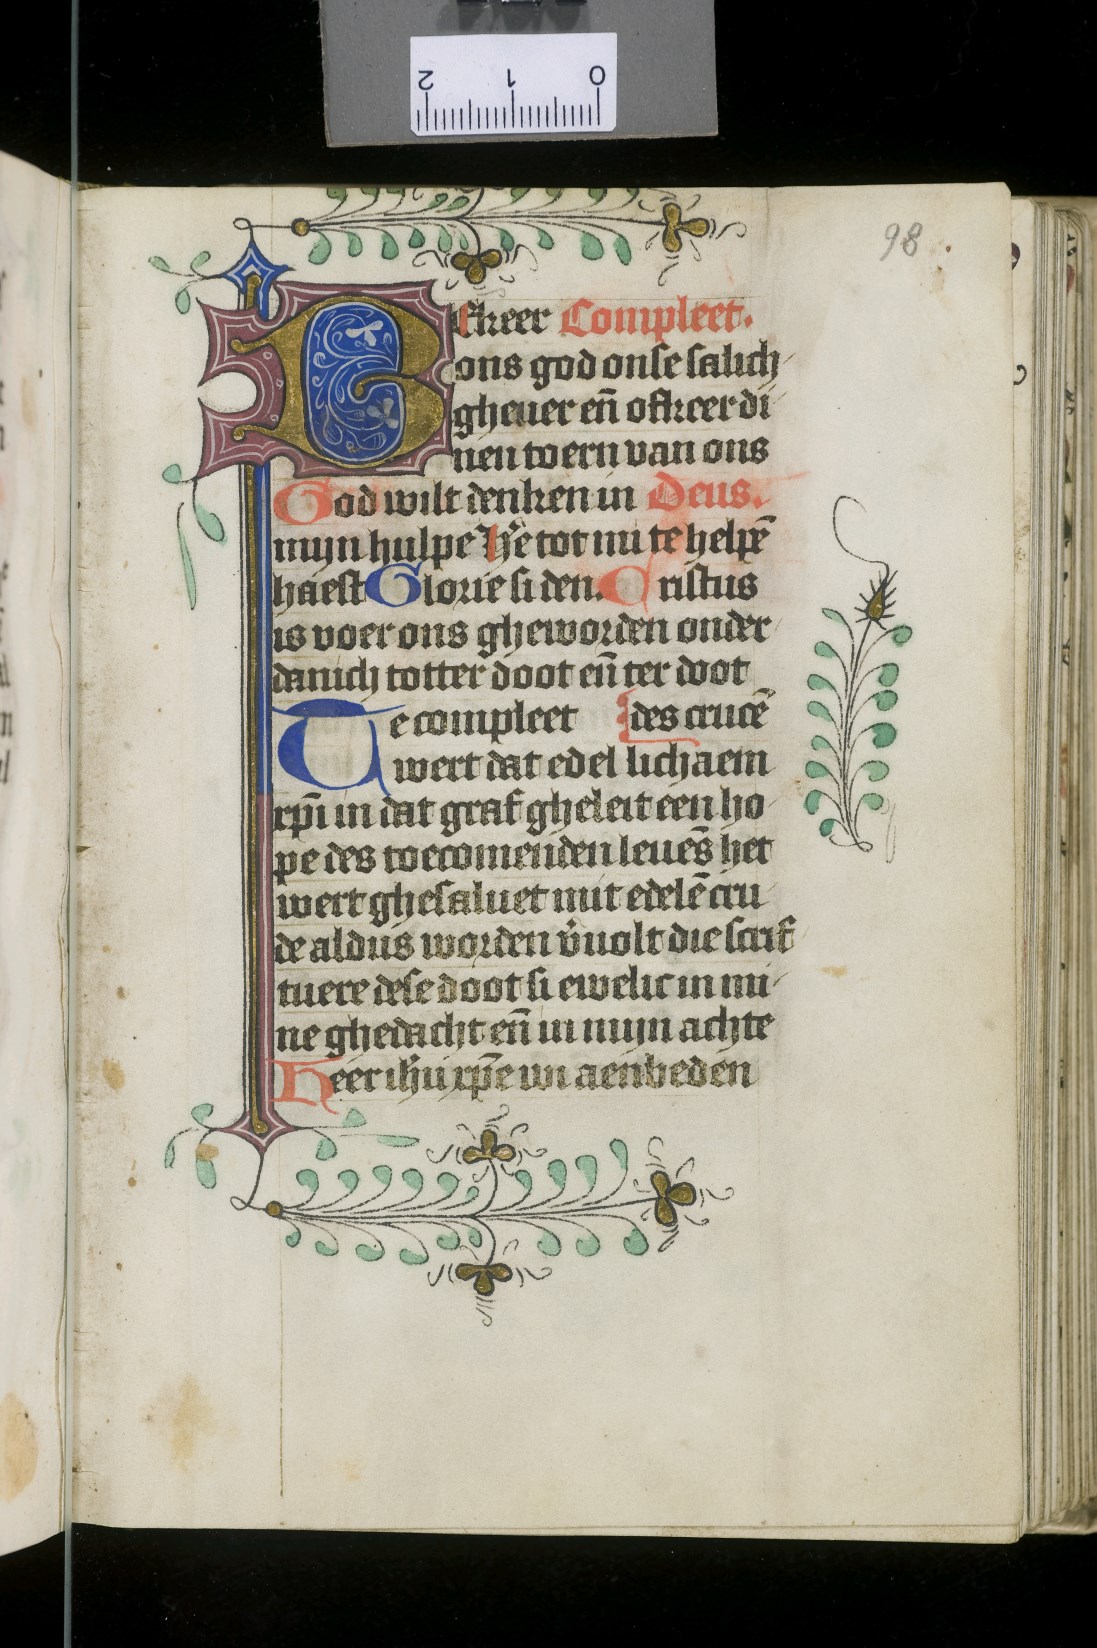 2 1 0
98
Bekeer Compleet.
ons god onse salich
gheuer en̄ ofkeer di
nen toern van ons
God wilt denken in Deus.
mijn hulpe he᷑ tot mi te helpē
haest Glorie si den. Cristus
is voer ons gheworden onder
danich totter doot en̄ ter doot
Te compleet des crucē
wert dat edel lichaem
xp̄i in dat graf gheleit een ho
pe des toecomenden leuēs het
wert ghesaluet mit edelē cru
de aldus worden v̓uolt die scrif
tuere dese doot si ewelic in mi
ne ghedacht en̄ in mijn achte
Heer ih̄u xp̄e wi aenbeden